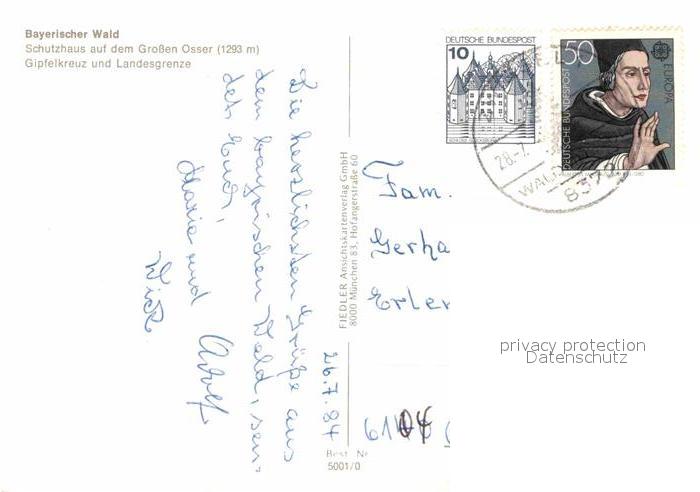 Bayerischer Wald
Schutzhaus auf dem Großen Osser (1293 m)
Gipfelkreuz und Landesgrenze
Die herzlichsten Grüße aus
dem bayrischen Wald, sen-
det Euch,
Maria und Adolf
26.7.84
FIEDLER Ansichtskartenverlag GmbH
8000 München 83, Hofangerstraße 60
Best. Nr
5001/0
DEUTSCHE BUNDESPOST
10
50
DEUTSCHE BUNDESPOST
EUROPA
28.-7.
WALD
Fam.
Gerha
Erler
privacy protection
Datenschutz